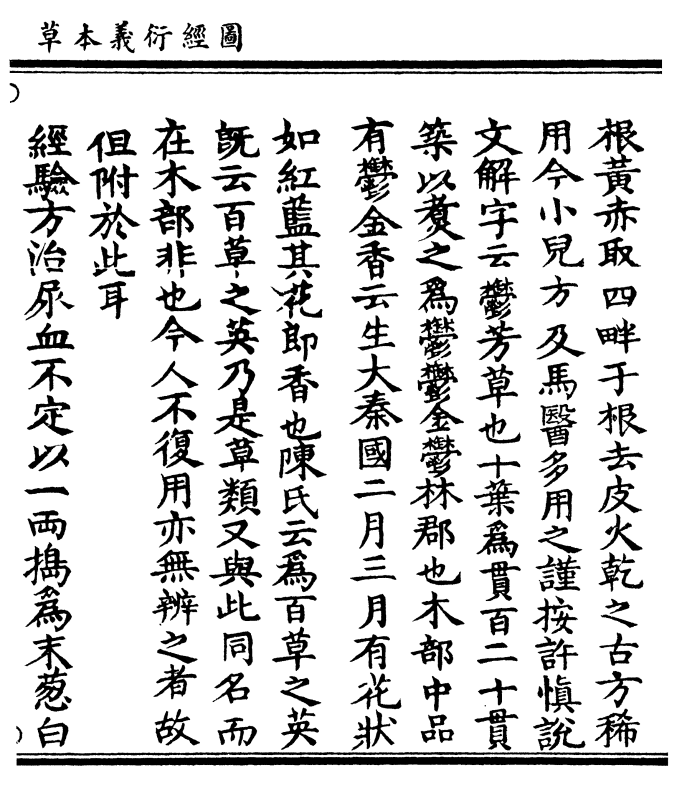 圖經衍義本草
根黃赤取四畔子根去皮火乾之古方稀
用今小兒方及馬醫多用之謹按許愼說
文解字云鬱芳草也十葉爲貫百二十貫
築以煑之爲鬱鬱金鬱林郡也木部中品
有鬱金香云生大秦國二月三月有花狀
如紅藍其花即香也陳氏云爲百草之英
既云百草之英乃是草類又與此同名而
在木部非也今人不復用亦無辨之者故
但附於此耳
經驗方治尿血不定以一兩搗爲末葱白